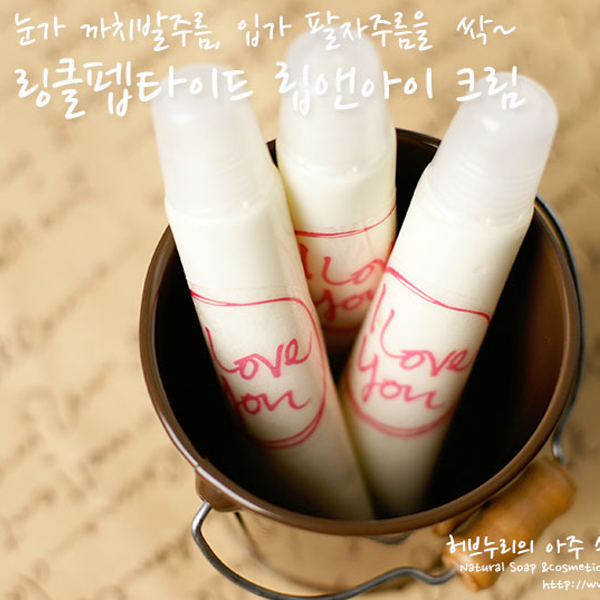 눈가 까치발주름, 입가 팔자주름을 싹~
링클펩타이드 립앤아이 크림
I Love
you
I Love
you
I Love
you
허브누리의 아주
Natural Soap &cosmetic
http://w